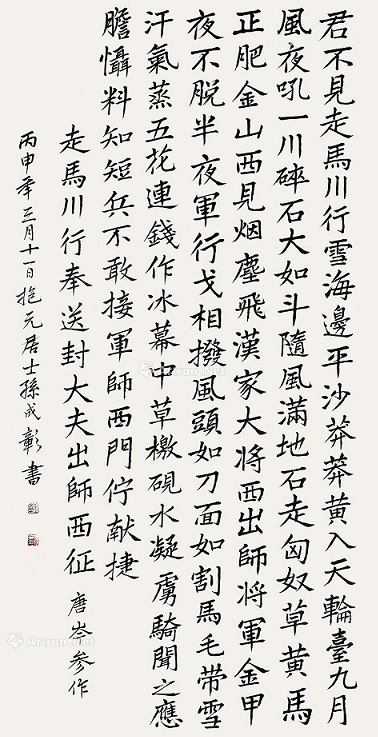 君不見走馬川行雪海邊平沙莽莽黃入天輪臺九月
風夜吼一川碎石大如斗隨風滿地石走匈奴草黃馬
正肥金山西見烟塵飛漢家大將西出師將軍金甲
夜不脫半夜軍行戈相撥風頭如刀面如割馬毛带雪
汗氣蒸五花連錢作冰幕中草檄硯水凝虜騎聞之應
膽懾料知短兵不敢接軍師西門佇献捷
走馬川行奉送封大夫出師西征 唐岑参作
丙申年三月十一日抱元居士孫成彰書